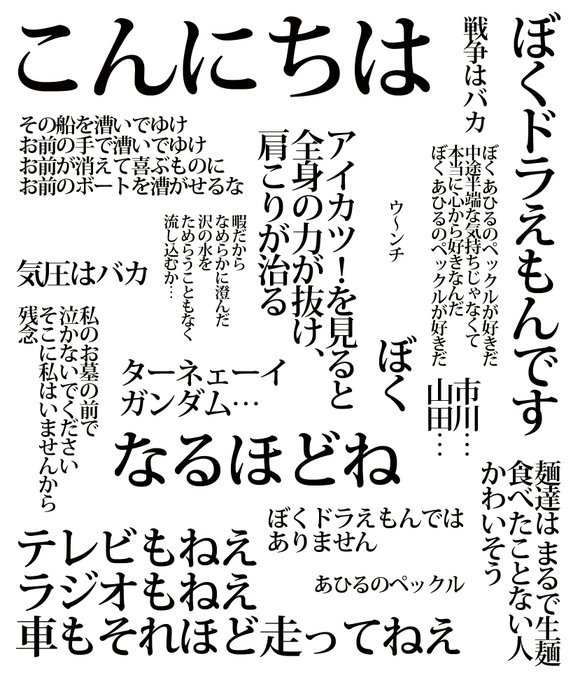 こんにちは
戦争はバカ
ぼくドラえもんです
その船を漕いでゆけ
お前の手で漕いでゆけ
お前が消えて喜ぶものに
お前のボートを漕がせるな
アイカツ！を見ると
全身の力が抜け、
肩こりが治る
ウ〜ンチ
ぼくあひるのペックルが好きだ
中途半端な気持ちじゃなくて
本当に心から好きなんだ
ぼくあひるのペックルが好きだ
暇だから
なめらかに澄んだ
沢の水を
ためらうこともなく
流し込むか…
気圧はバカ
私のお墓の前で
泣かないでください
そこに私はいませんから
残念
ターネェーイ
ガンダム…
ぼく
市川…
山田…
なるほどね
麺達はまるで生麺
食べたことない人
かわいそう
ぼくドラえもんでは
ありません
あひるのペックル
テレビもねえ
ラジオもねえ
車もそれほど走ってねえ